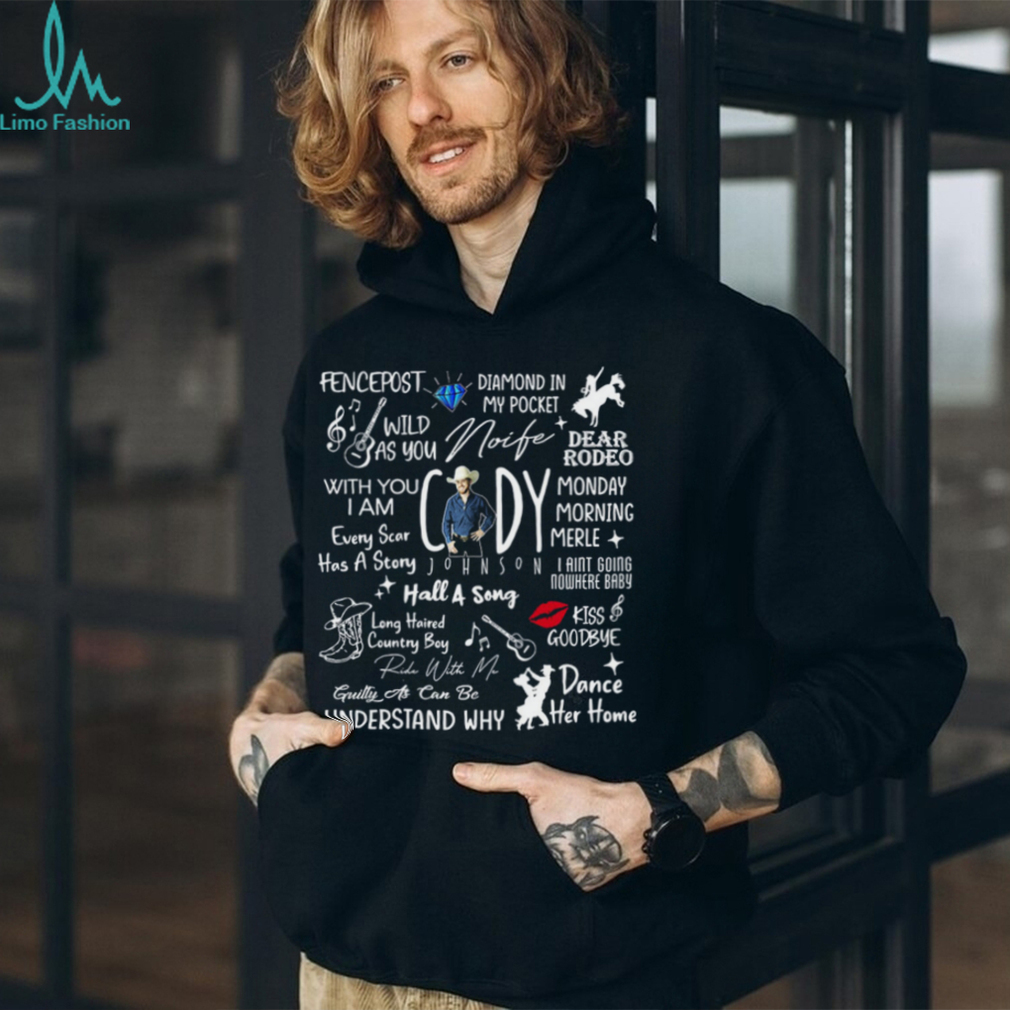 Limo Fashion
FENCEPOST
DIAMOND IN
MY POCKET
WILD
AS YOU
Noife
DEAR
RODEO
WITH YOU
I AM
CODY
JOHNSON
MONDAY
MORNING
MERLE
Every Scar
Has A Story
I AINT GOING
NOWHERE BABY
Hall A Song
Long Haired
Country Boy
KISS
GOODBYE
Ride With Me
Guilty As Can Be
Dance
Her Home
UNDERSTAND WHY